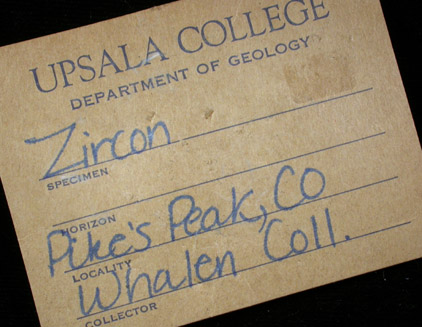 UPSALA COLLEGE
DEPARTMENT OF GEOLOGY
Zircon
SPECIMEN
HORIZON
Pike's Peak, CO
LOCALITY
Whalen Coll.
COLLECTOR